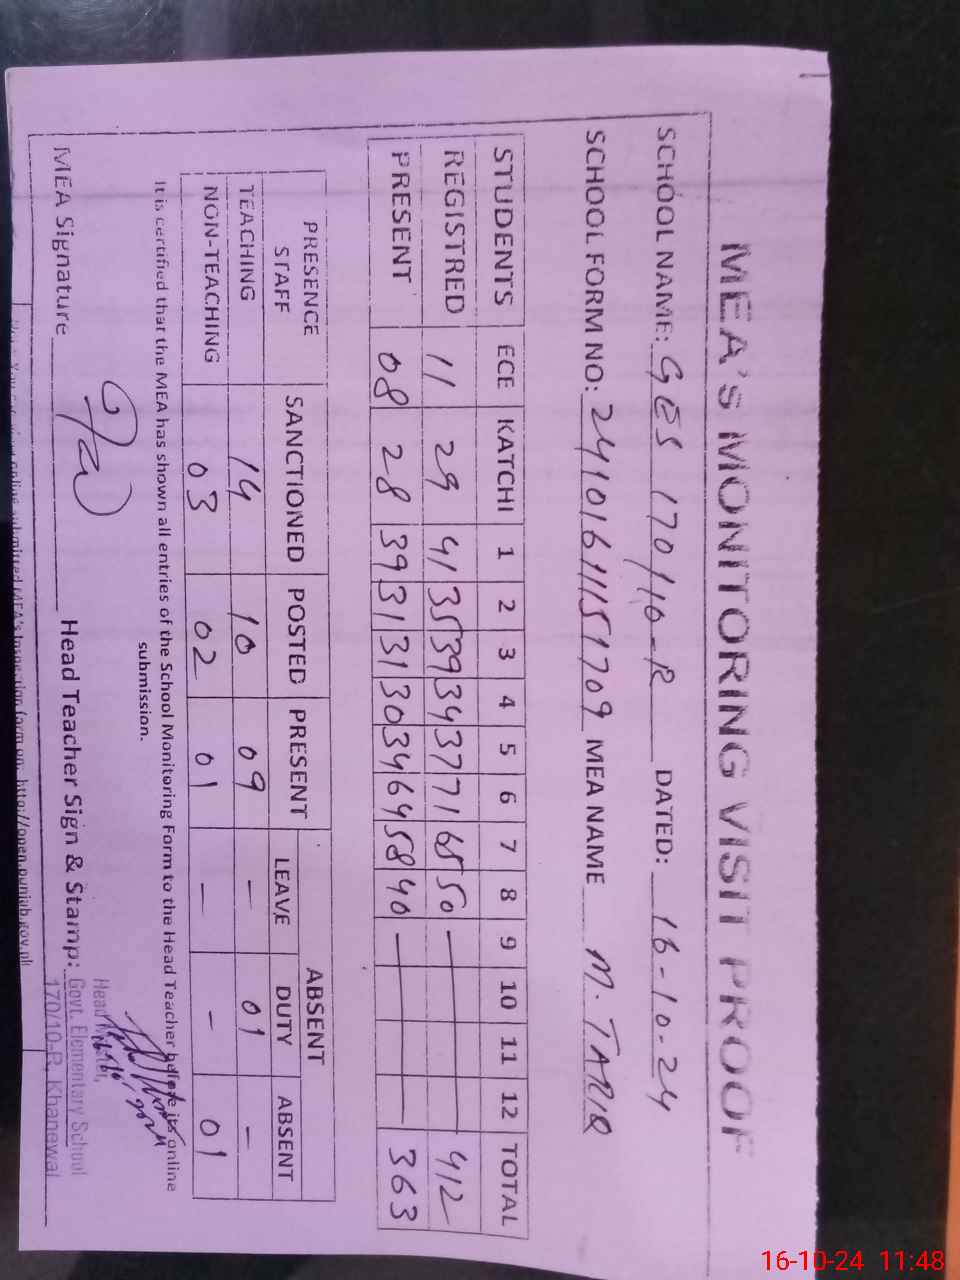 MEA'S MONITORING VISIT PROOF
SCHOOL NAME: GES 170/10-R DATED: 16-10-24
SCHOOL FORM NO: 24101611151709 MEA NAME M. TARIQ
STUDENTS ECE KATCHI 1 2 3 4 5 6 7 8 9 10 11 12 TOTAL
REGISTRED 11 29 41 35 39 34 37 71 65 50 — 412
PRESENT 08 28 39 31 31 30 34 64 58 40 — 363
PRESENCE STAFF SANCTIONED POSTED PRESENT ABSENT
LEAVE DUTY ABSENT
TEACHING 14 10 09 - 01 -
NON-TEACHING 03 02 01 - - 01
It is certified that the MEA has shown all entries of the School Monitoring Form to the Head Teacher before its online
submission.
MEA Signature Head Teacher Sign & Stamp:
Head Master,
Govt. Elementary School
170/10-R, Khanewal
online submitted MEA's Inspection form on: http://open.punjab.gov.pk
16-10-24 11:48